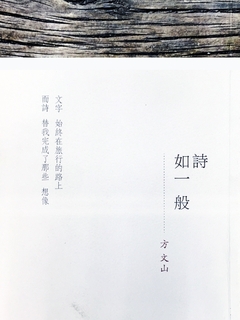 詩
如一般
方文山
文字 始終在旅行的路上
而詩 替我完成了那些 想像